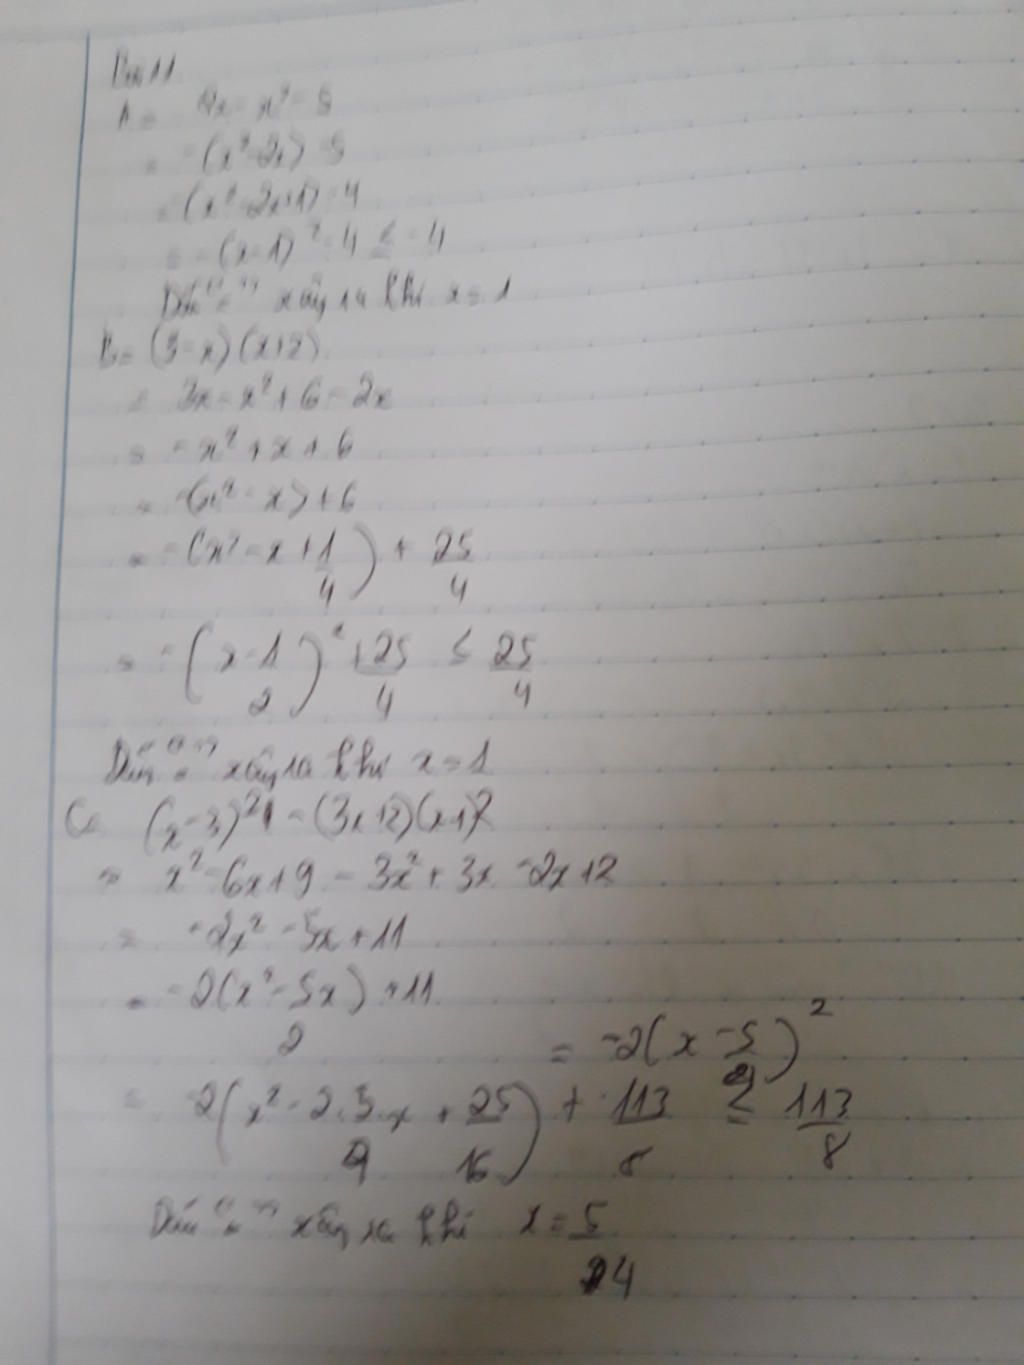 Bài 11
A = 2x - x² - 5
= -(x² - 2x) - 5
= -(x² - 2x + 1) - 4
= -(x - 1)² - 4 ≤ -4
Dấu "=" xảy ra khi x = 1
B = (3 - x)(x + 2)
= 3x - x² + 6 - 2x
= -x² + x + 6
= -(x² - x) + 6
= -(x² - x + 1/4) + 25/4
= -(x - 1/2)² + 25/4 ≤ 25/4
Dấu "=" xảy ra khi x = 1
C = (x - 3)² - (3x + 2)(x - 1)
= x² - 6x + 9 - 3x² + 3x - 2x + 2
= -2x² - 5x + 11
= -2(x² - 5x/2) + 11
= -2(x² - 2.5/4.x + 25/16) + 113/8
= -2(x - 5/4)² ≤ 113/8
Dấu "=" xảy ra khi x = 5/4